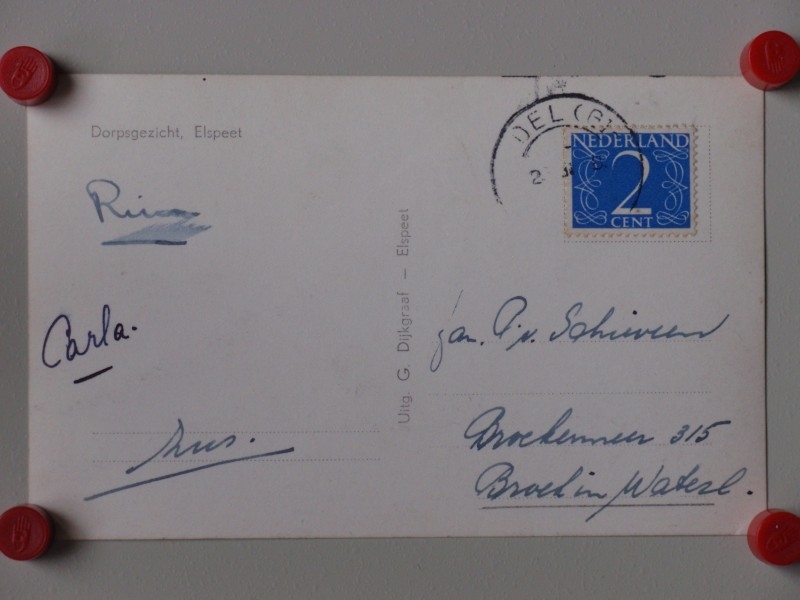 Dorpsgezicht, Elspeet
DEL (G)
NEDERLAND
2
CENT
Carla.
Uitg. G. Dijkgraaf — Elspeet
fam. P. v. Schieveen
Broekermeer 315
Broek in Waterl.